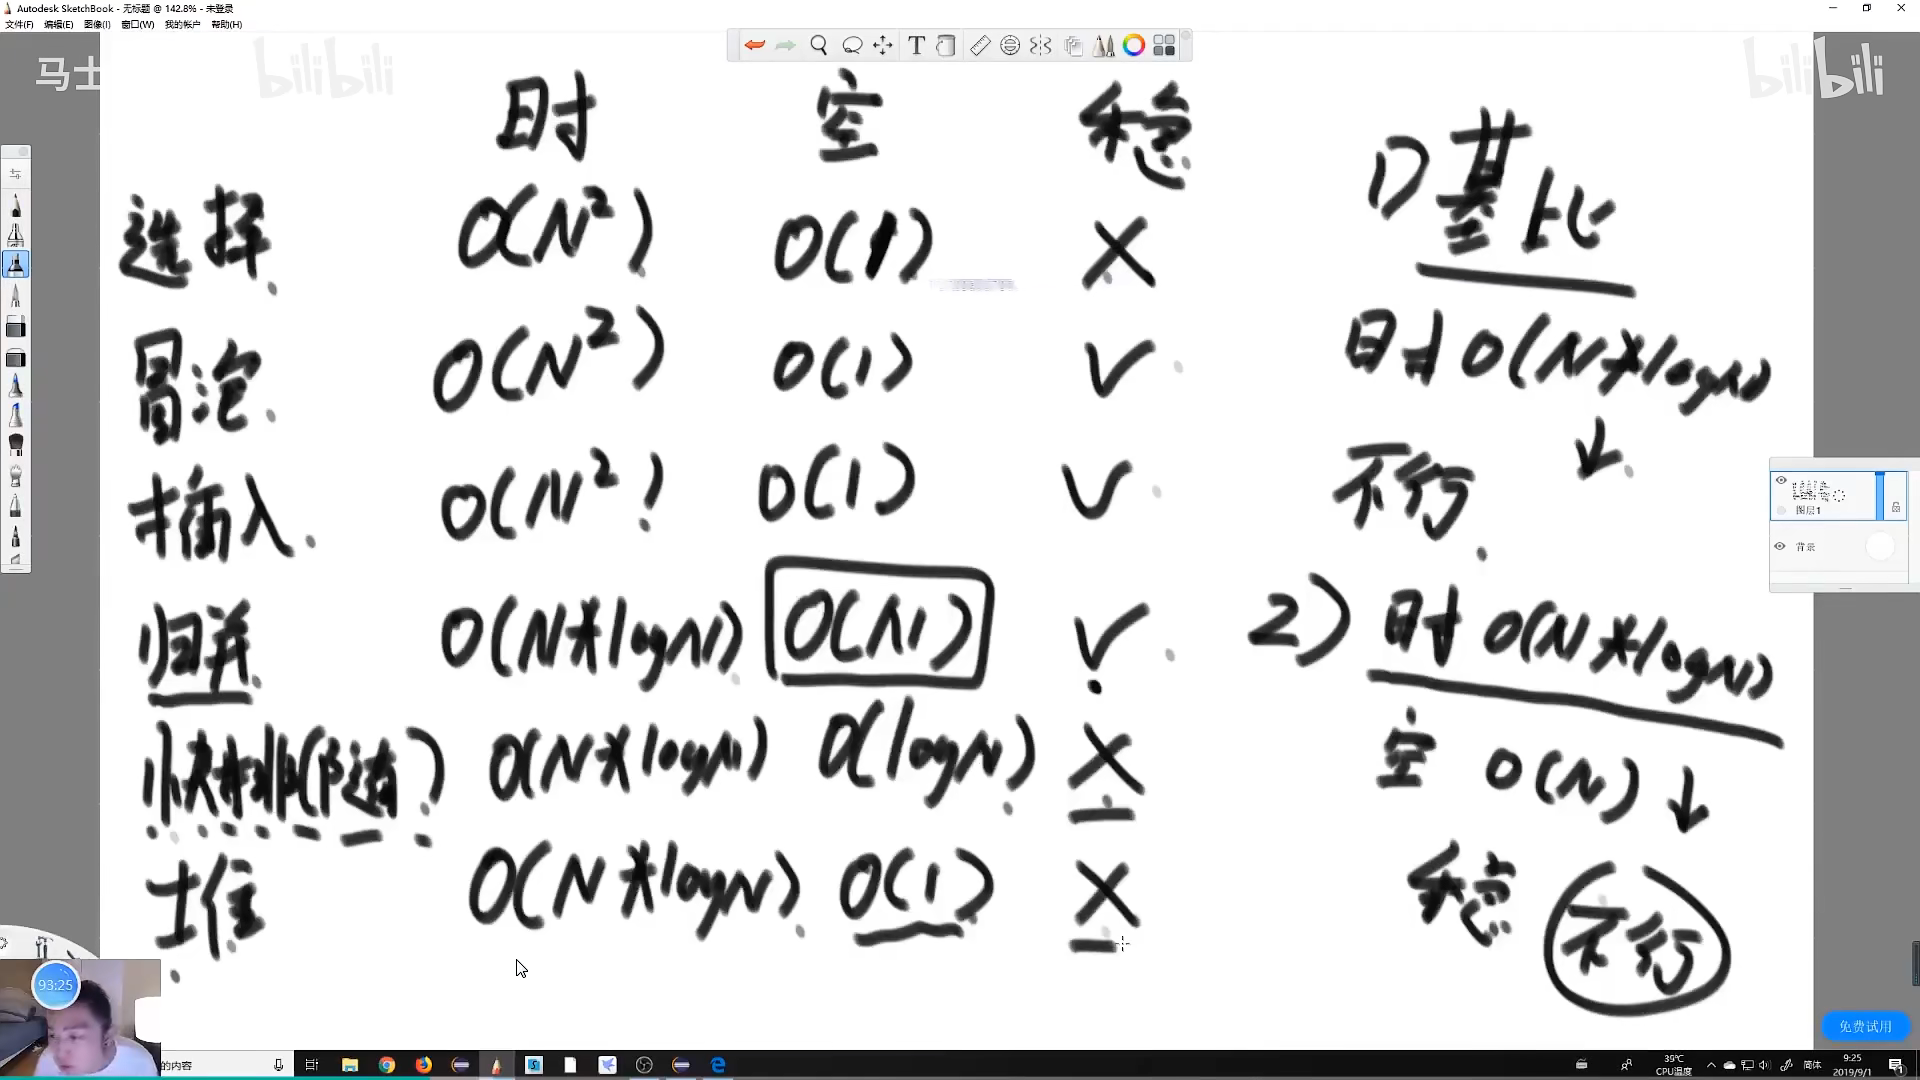 Autodesk SketchBook - 无标题 @ 142.8% - 未登录
文件(F) 编辑(E) 图像(I) 窗口(W) 我的帐户 帮助(H)
马士 bilibili bilibili
时 空 稳
选择 O(N²) O(1) X
冒泡 O(N²) O(1) √
插入 O(N²) O(1) √
归并 O(N*logN) O(N) √
快排(随) O(N*logN) O(logN) X
堆 O(N*logN) O(1) X
1) 基比
时 O(N*logN) ↓
不行
2) 时 O(N*logN)
空 O(N) ↓
稳 不行
图层1
背景
免费试用
93:25
的内容
39℃
CPU温度
简体
9:25
2019/9/1